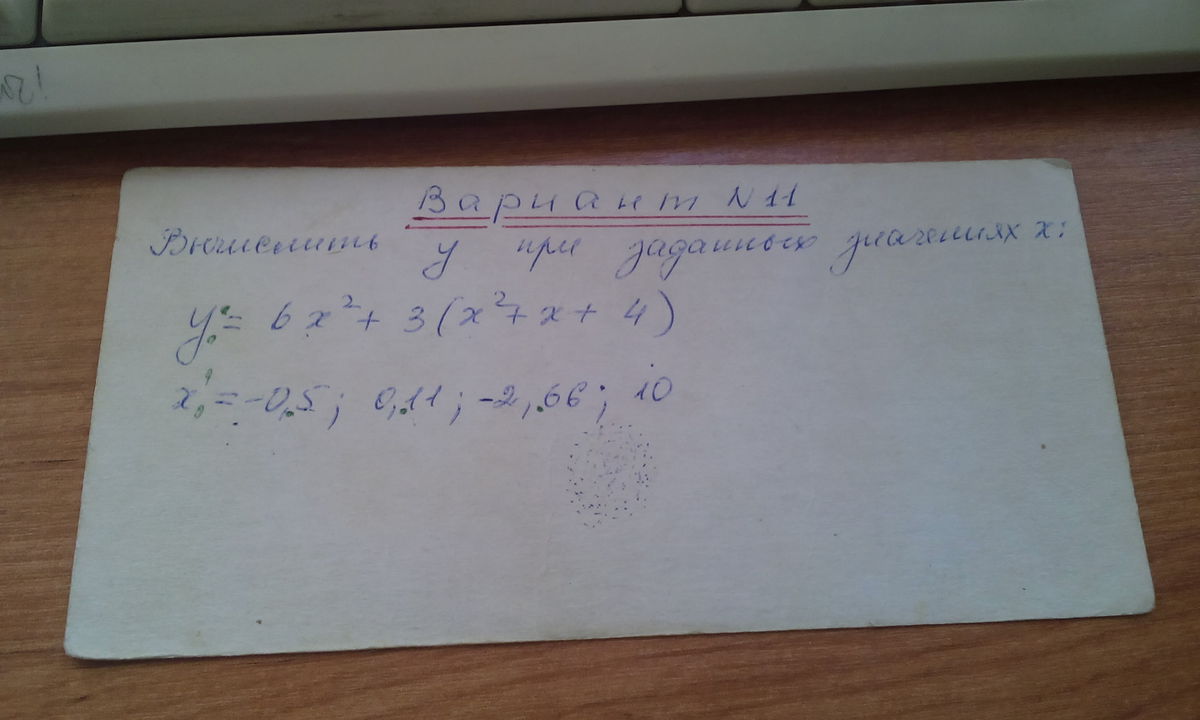 Вариант N 11
Вычислить y при заданных значениях x:
y = 6x² + 3(x² + x + 4)
x = -0,5; 0,11; -2,66; 10